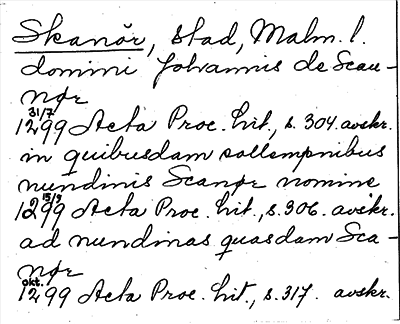 Skanör, stad, Malm. l.
domini Johannis de Scau-
nør
31/7
1299 Acta Proc. lit., s. 304. avskr.
in quibusdam sollempnibus
nundinis Scanør nomine
15/9
1299 Acta Proc. lit., s. 306. avskr.
ad nundinas quasdam Sca-
nør
okt.
1299 Acta Proc. lit., s. 317. avskr.